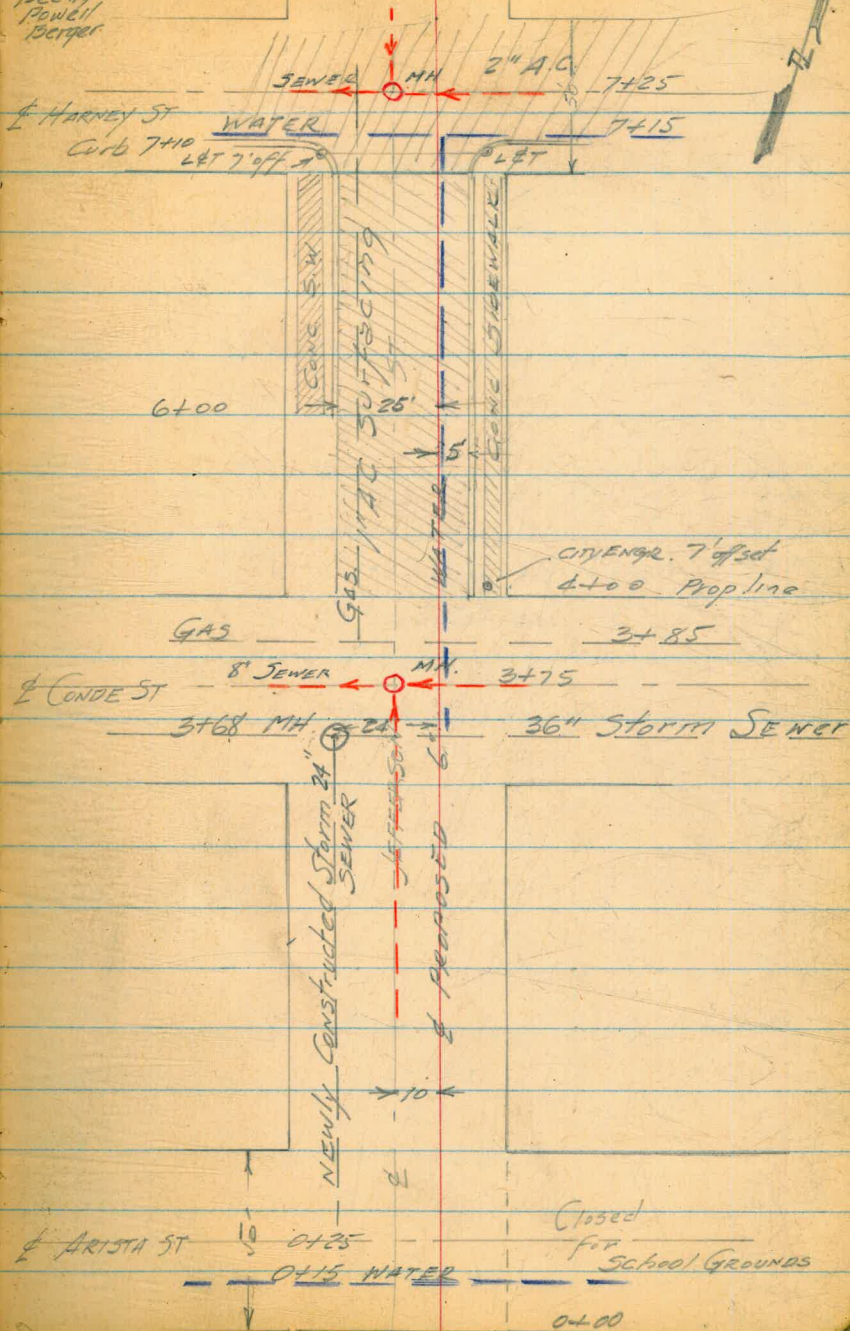 Powell
Berger
N
SEWER MH 2" A.C.
7+25
50'
℄ HARNEY ST
WATER 7+15
Curb 7+10
L&T 7' off
L&T
CONC S.W
1" AC Surfacing
ST
CONC SIDEWALK
6+00 25'
5'
WATER
GAS
CITY ENGR. 7' offset
4+00 Prop line
GAS 3+85
8" SEWER MH. 3+75
℄ CONDE ST
3+68 MH 24' 36" Storm Sewer
JEFFERSON
NEWLY Constructed Storm 24"
SEWER
℄ PROPOSED 6"
10
℄
50'
℄ ARISTA ST 0+25
Closed
For
School GROUNDS
0+15 WATER
0+00